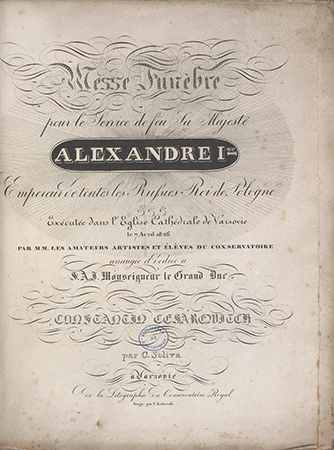 Messe Funèbre
pour le Service de feu Sa Majesté
ALEXANDRE I.er
Empereur de toutes les Russies Roi de Pologne
Exécutée dans l'Eglise Cathédrale de Varsovie
le 7 Avril 1826
PAR MM. LES AMATEURS ARTISTES ET ÉLÈVES DU CONSERVATOIRE
arrangée et dédiée à
S.A.I. Monseigneur le Grand Duc
CONSTANTIN CESAREWITCH
par C. Soliva
à Varsovie
De la Litographie du Conservatoire Royal